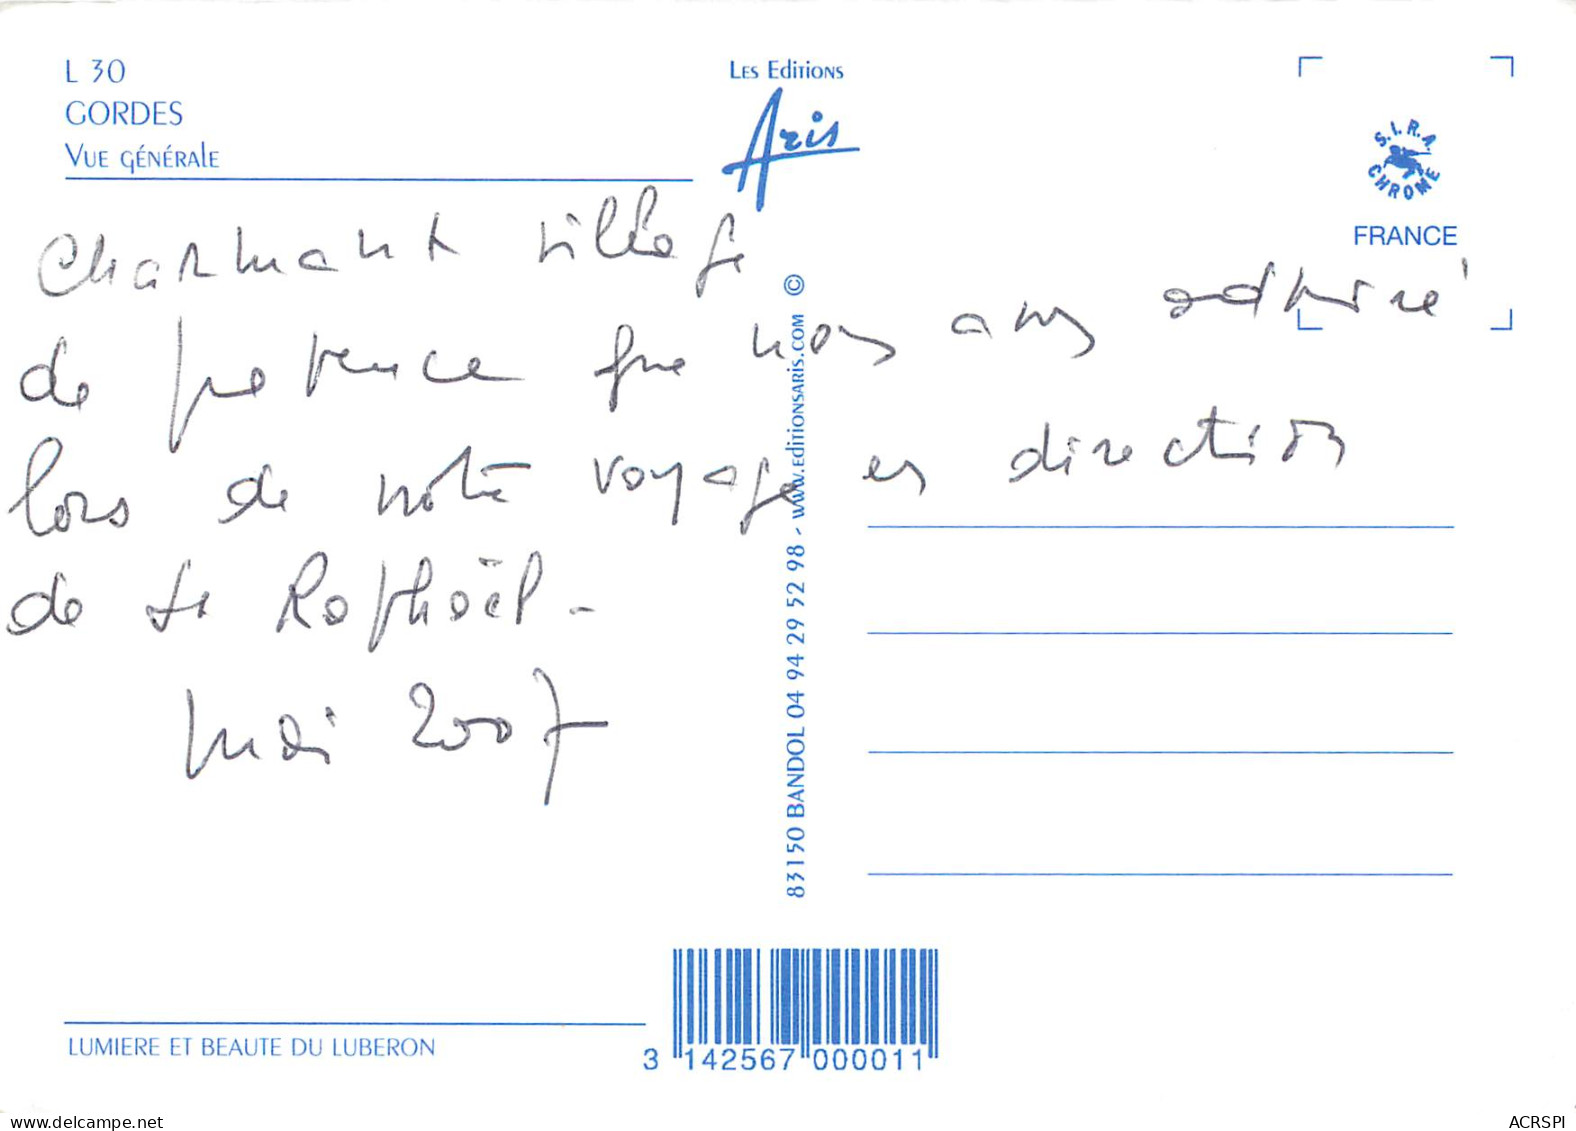 L 30
GORDES
VUE GÉNÉRALE
LES EDITIONS
Aris
S.I.R.A.
CHROME
FRANCE
Charmant village
de provence que nous avons admiré
lors de notre voyage en direction
de St Raphaël -
Mai 2007
83150 BANDOL 04 94 29 52 98 - WWW.EDITIONSARIS.COM ©
LUMIERE ET BEAUTE DU LUBERON
3 142567 000011
delcampe.net
ACRSPI